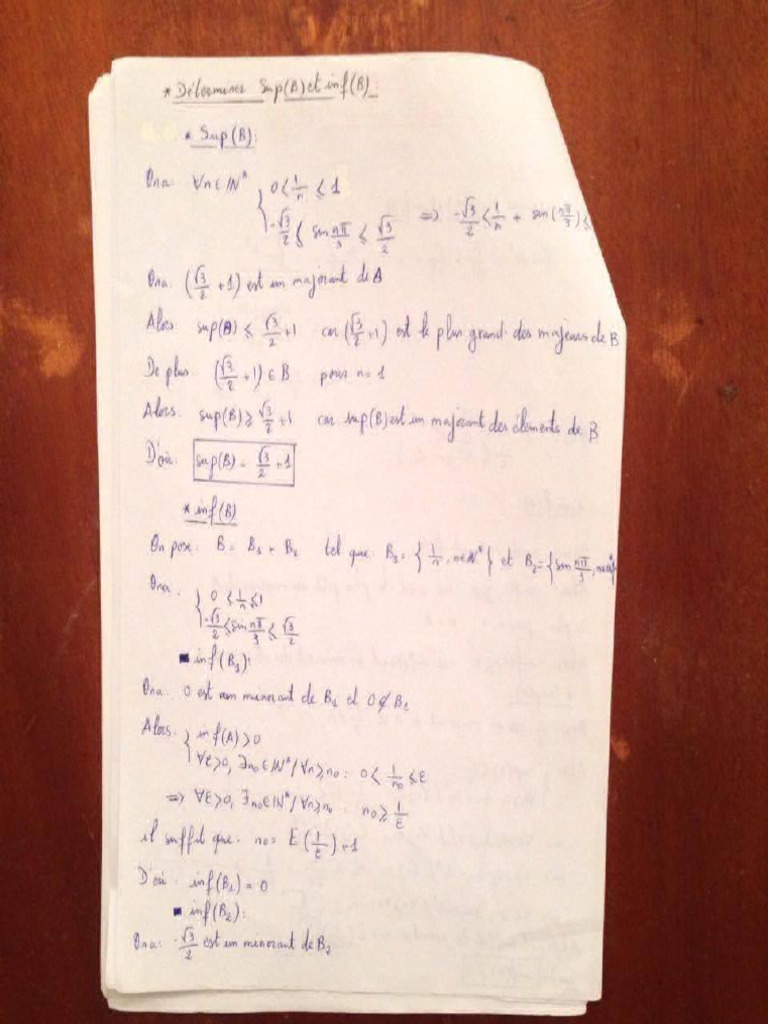 * Déterminer Sup(B) et inf(B):
* Sup(B):
Ona: ∀n∈IN* { 0 < 1/n ≤ 1
-√3/2 ≤ sin nπ/3 ≤ √3/2 ⇒ -√3/2 < 1/n + sin(nπ/3) ≤
Ona: (√3/2 + 1) est un majorant de A
Alors: sup(B) ≤ √3/2 + 1 car (√3/2 + 1) est le plus grand des majeurs de B
De plus: (√3/2 + 1) ∈ B pour n = 1
Alors: sup(B) ≥ √3/2 + 1 car sup(B) est un majorant des éléments de B
D'où: sup(B) = √3/2 + 1
* inf(B)
On pose: B = B1 + B2 tel que: B1 = { 1/n, n∈IN* } et B2 = { sin nπ/3,
Ona: { 0 < 1/n ≤ 1
-√3/2 ≤ sin nπ/3 ≤ √3/2
▪ inf(B1):
Ona: 0 est un minorant de B1 et 0 ∉ B1
Alors: { inf(A) > 0
∀ε>0, ∃n0∈IN* / ∀n≥n0: 0 < 1/n0 ≤ ε
⇒ ∀ε>0, ∃n0∈IN* / ∀n≥n0 n0 ≥ 1/ε
il suffit que: n0 = E(1/ε) + 1
D'où: inf(B1) = 0
▪ inf(B2):
Ona: -√3/2 est un minorant de B2